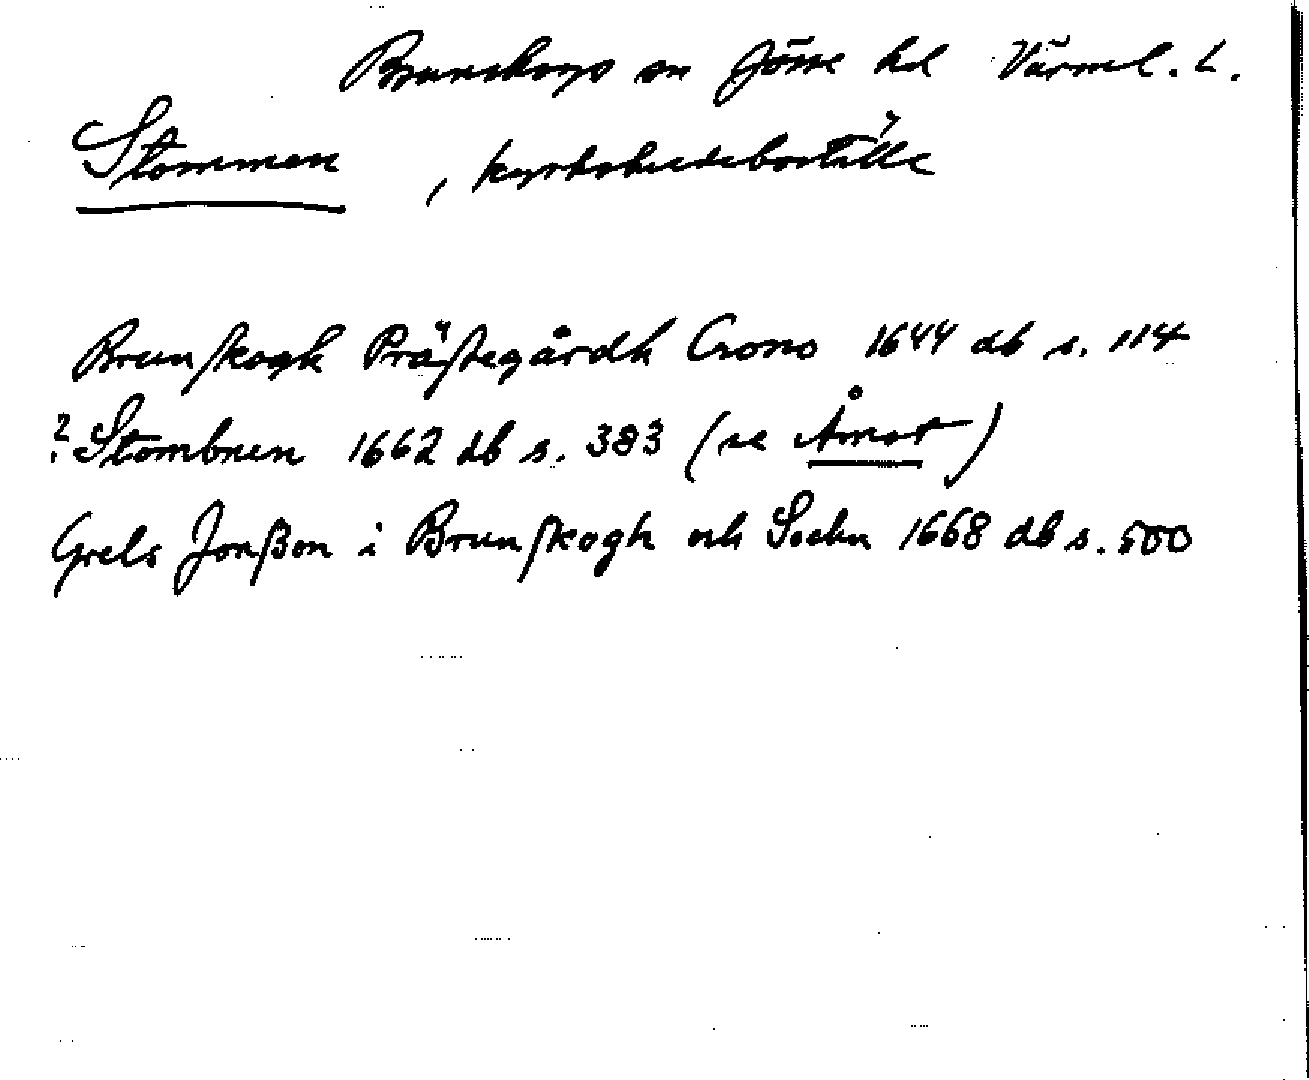 Brunskogs sn Jösse hd Värml. L.
Stommen , kyrkoherdeboställe
Brunskogh Prästegårdh Crono 1644 db s. 114
? Stombrun 1662 db s. 383 (se Åmot)
Grels Jonßon i Brunskogh och Sochn 1668 db s. 500